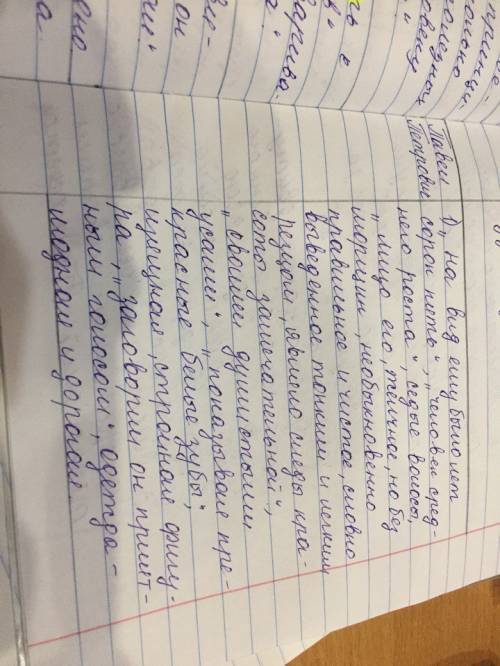 Павел
Петрович
1) „ на вид ему было лет
сорок пять", „человек сред-
него роста", седые волосы,
„лицо его, желчное, но без
морщин, необыкновенно
правильное и чистое, словно
выведенное тонким и легким
резцом, являло следы кра-
соты замечательной",
„своими душистыми
усами", „показывая пре-
красные белые зубы",
изящная, стройная фигу-
ра, „заговорил он прият-
ным голосом", одежда -
модная и дорогая